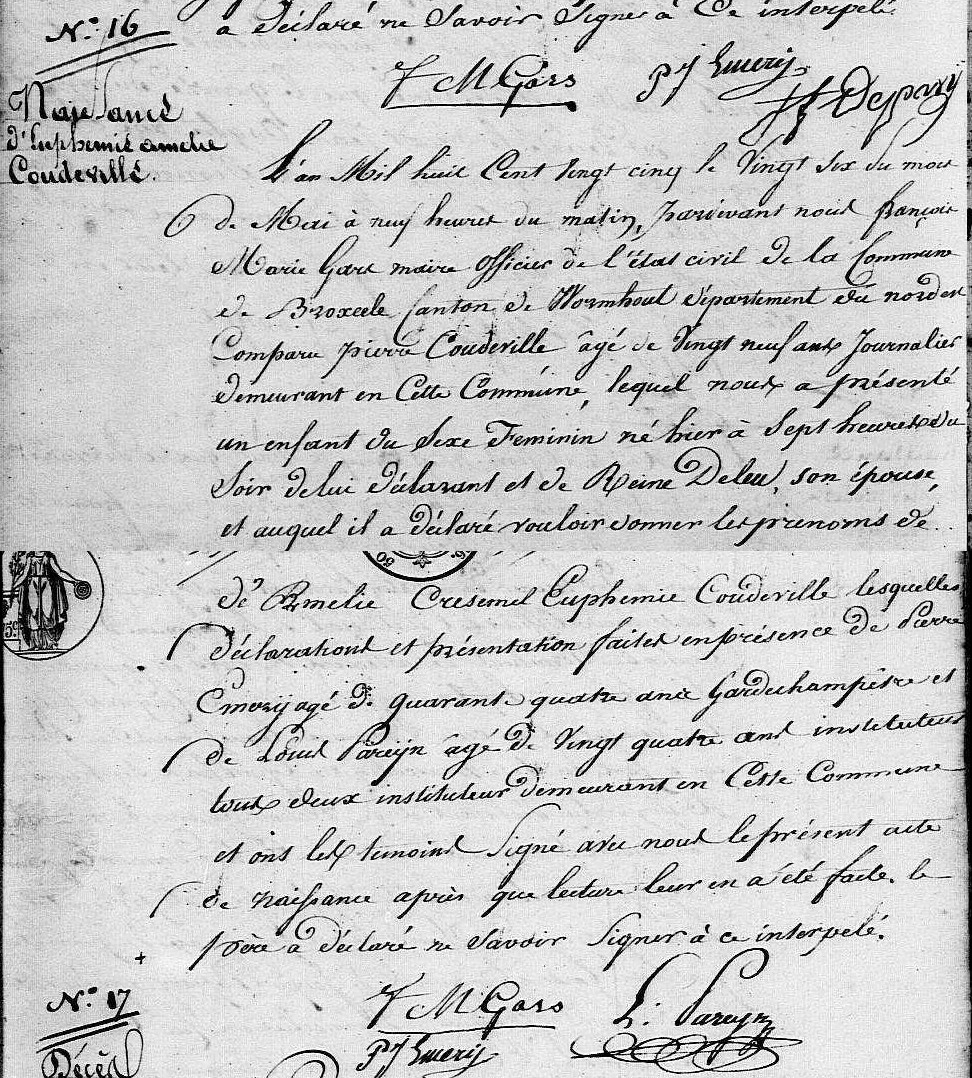 a déclaré ne Savoir Signer à Ce interpelé.
N.° 16
f M Gars PJ Emerij
Naissance
d'Euphemie amelie
Coudeville
L'an Mil huit Cent Vingt cinq le Vingt six du mois
de Mai à neuf heures du matin, pardevant nous françois
Marie Gars maire officier de l'état civil de la Commune
de Broxeele Canton de Wormhout département du nord est
Comparu pierre Coudeville âgé de Vingt neuf ans Journalier
demeurant en Cette Commune, lequel nous a présenté
un enfant du Sexe Feminin né hier à Sept heures du
Soir de lui déclarant et de Reine Deleu, son épouse,
et auquel il a déclaré vouloir donner les prenoms de
de Amelie Euphemie Coudeville lesquelles
déclarations et présentation faites en présence de Pierre
Emerij agé de quarant quatre ans Gardechampêtre et
de Louis Pareyn âgé de Vingt quatre ans instituteur
tous deux instituteur demeurant en Cette Commune
et ont les temoins Signé avec nous le présent acte
de naissance après que lecture leur en a été faite. le
père a déclaré ne Savoir Signer à ce interpelé.
N.° 17
f M Gars L. Pareyn
PJ Emerij
Décès